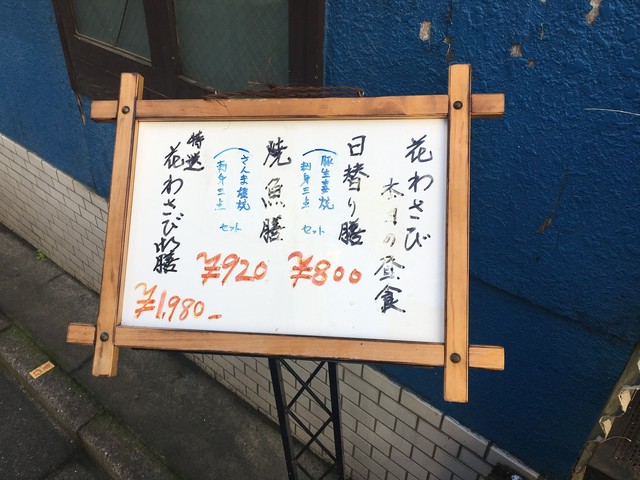 花わさび
本日の昼食
日替り膳
豚生姜焼
刺身三点
セット
¥800
焼魚膳
さんま塩焼
刺身三点
セット
¥920
特選
花わさび御膳
¥1,980-